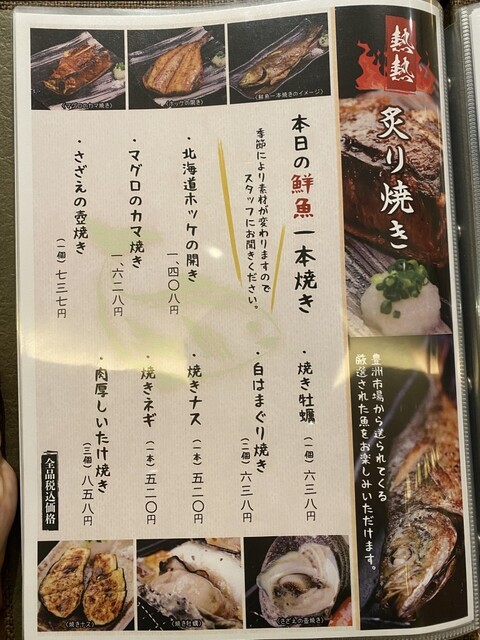 熱熱
炙り焼き
豊洲市場から送られてくる
厳選された魚をお楽しみいただけます。
(マグロのカマ焼き)
(ホッケの開き)
(鮮魚一本焼きのイメージ)
本日の鮮魚一本焼き
季節により素材が変わりますので
スタッフにお聞きください。
・北海道ホッケの開き
一、四〇八円
・マグロのカマ焼き
一、六二八円
・さざえの壺焼き
(一個)七三七円
・焼き牡蠣(一個)六三八円
・白はまぐり焼き
(二個)六三八円
・焼きナス(一本)五二〇円
・焼きネギ(一本)五二〇円
・肉厚しいたけ焼き
(三個)八五八円
全品税込価格
(焼きナス)
(焼き牡蠣)
(さざえの壺焼き)